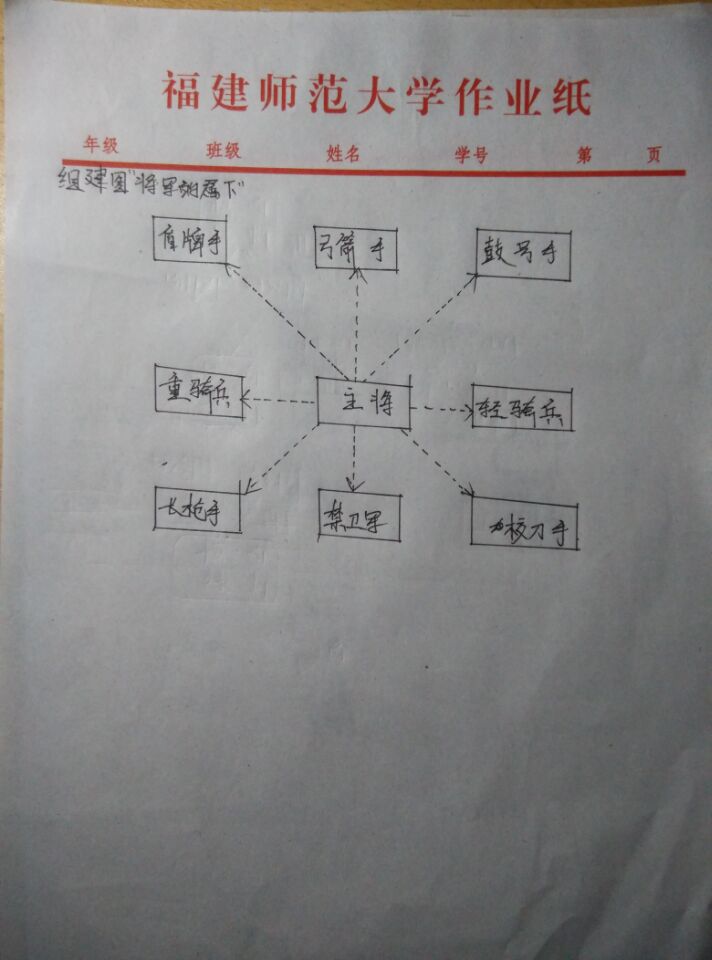 福建师范大学作业纸
年级 班级 姓名 学号 第 页
组建图"将军的属下"
盾牌手 弓箭手 鼓号手
重骑兵 主将 轻骑兵
长枪手 禁卫军 校刀手